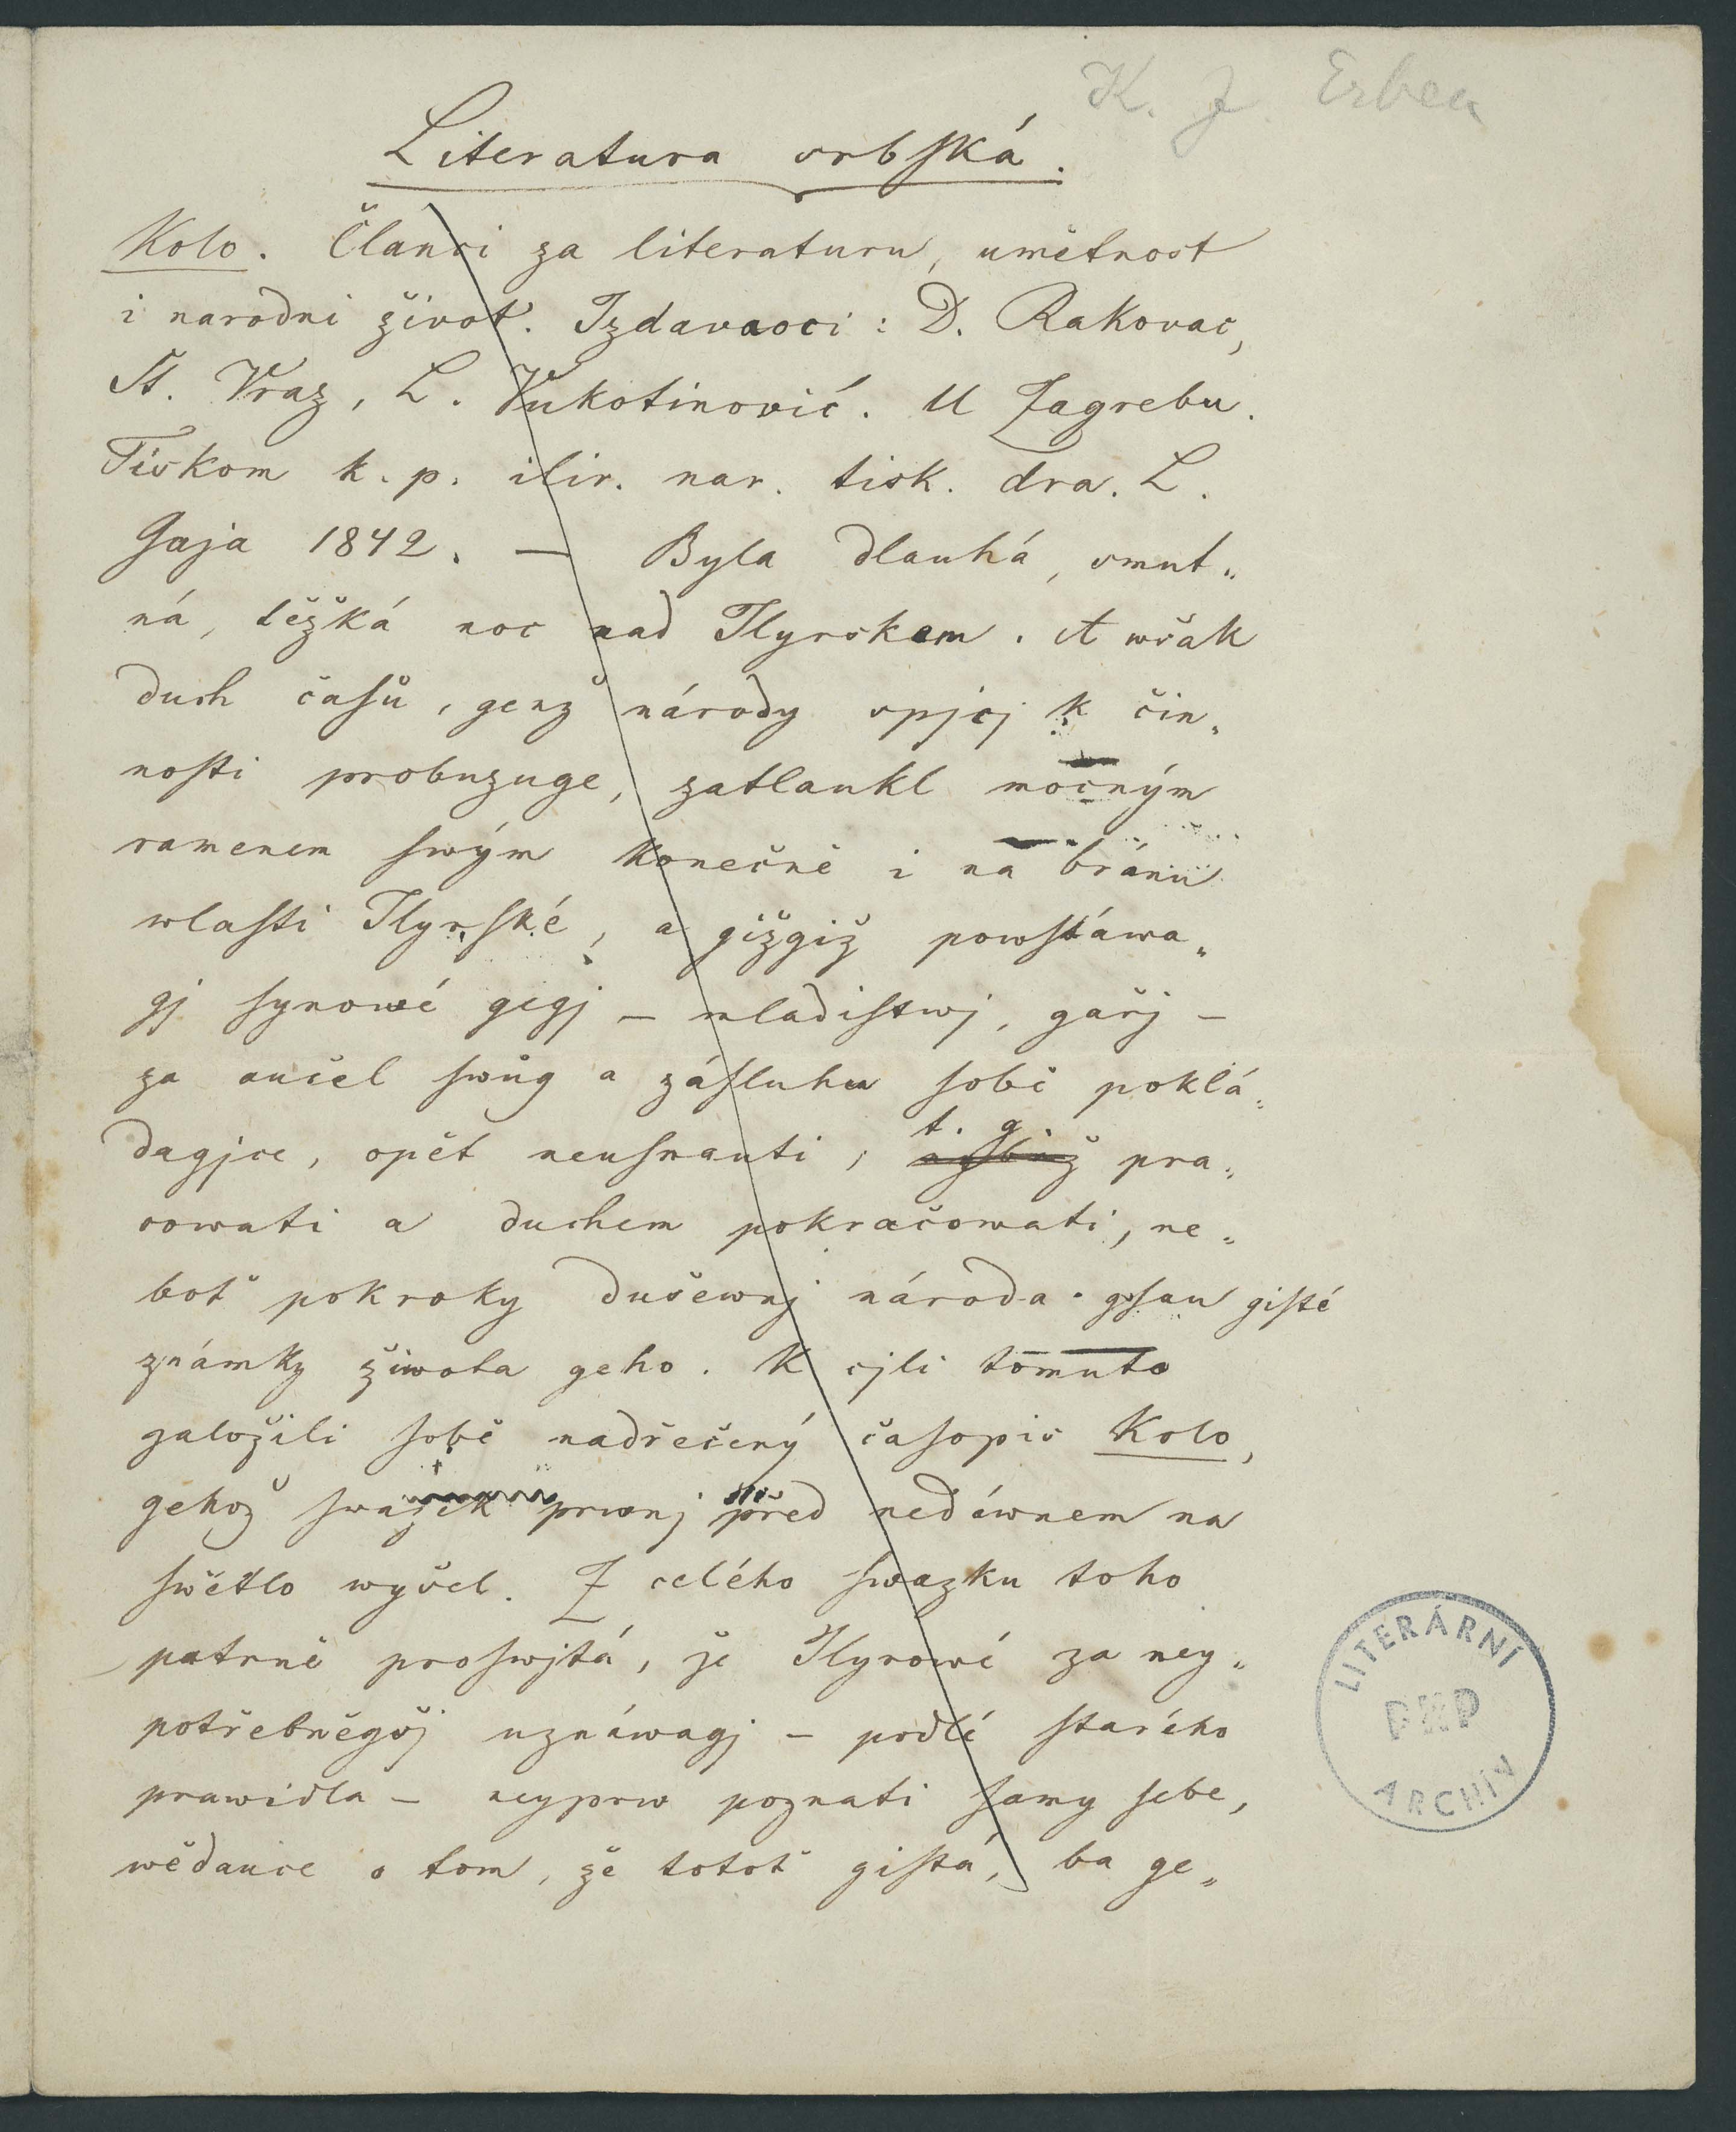 K. J. Erben
Literatura srbſká.
Kolo. Članci za literaturu, umětnost
i narodni život. Izdavaoci: D. Rakovac,
St. Vraz, L. Vukotinović. U Zagrebu.
Tiskom k. p. ilir. nar. tisk. dra. L.
Gaja 1842. — Byla dlauhá, smut„
ná, těžká noc nad Ilyrskem. A wšak
duch čaſů, genž národy spjcj k čin„
noſti probuzuge, zatlaukl mocným
ramenem ſwým konečně i na bránu
wlaſti Ilyrſké, a gižgiž powſtáwa„
gj ſynowé gegj – mladiſtwj, gařj –
za aučel ſwůg a záſluhu ſobě poklá„
dagjce, opět neuſnauti, t. g. pra„
cowati a duchem pokračowati, ne„
boť pokroky dušewnj národa gſau giſté
známky žiwota geho. K cjli tomuto
založili ſobě nadřečený čaſopis Kolo,
gehož ſwazek prwnj před nedáwnem na
ſwětlo wyšel. Z celého ſwazku toho
patrně proſwjtá, že Ilyrowé za ney„
potřebněgšj uznáwagj – podlé ſtarého
prawidla – neyprw poznati ſamy ſebe,
wědauce o tom, že totoť giſtá, ba ge„
LITERÁRNÍ
PNP
ARCHIV